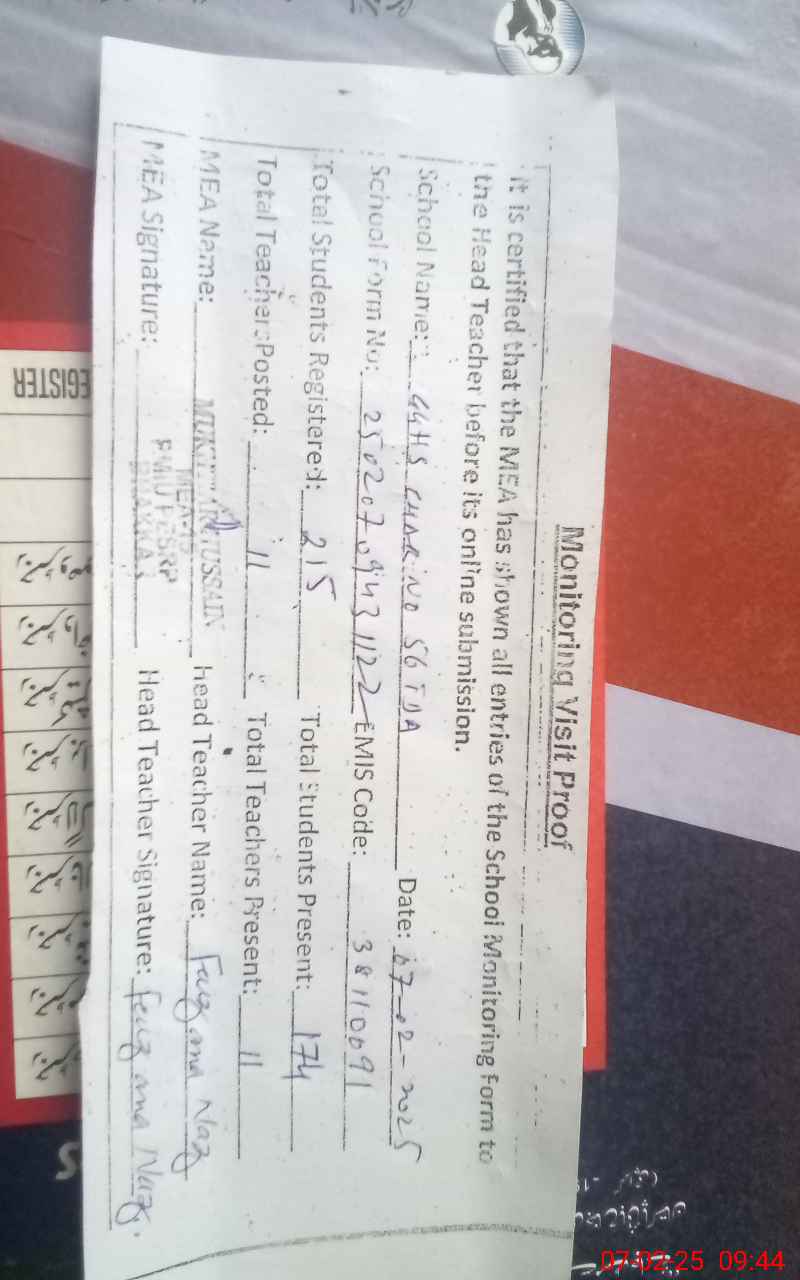 Monitoring Visit Proof
It is certified that the MEA has shown all entries of the School Monitoring Form to
the Head Teacher before its online submission.
School Name: GGHS CHAK NO 56 TDA Date: 07-02-2025
School Form No: 25020709431122 EMIS Code: 38110091
Total Students Registered: 215 Total Students Present: 174
Total Teachers Posted: 11 Total Teachers Present: 11
MEA Name: HUSSAIN Head Teacher Name: Farzana Naz
MEA-15
PMU PESRP
BHAKKAR
MEA Signature: Head Teacher Signature: Farzana Naz.
REGISTER
07-02-25 09:44